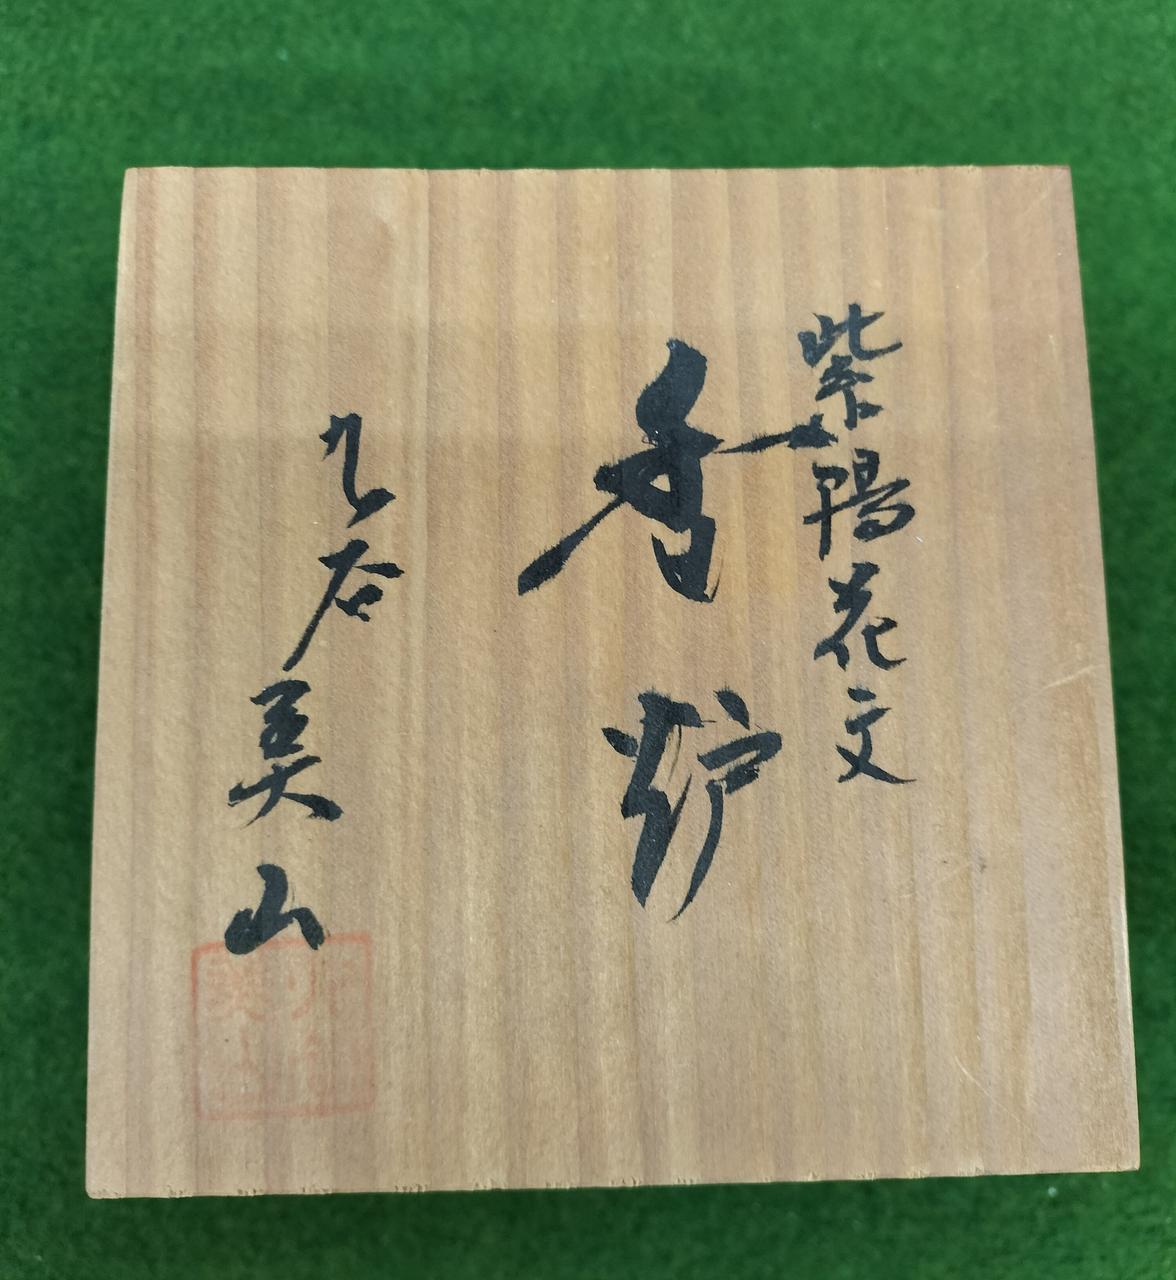 紫陽花文
香炉
九谷美山